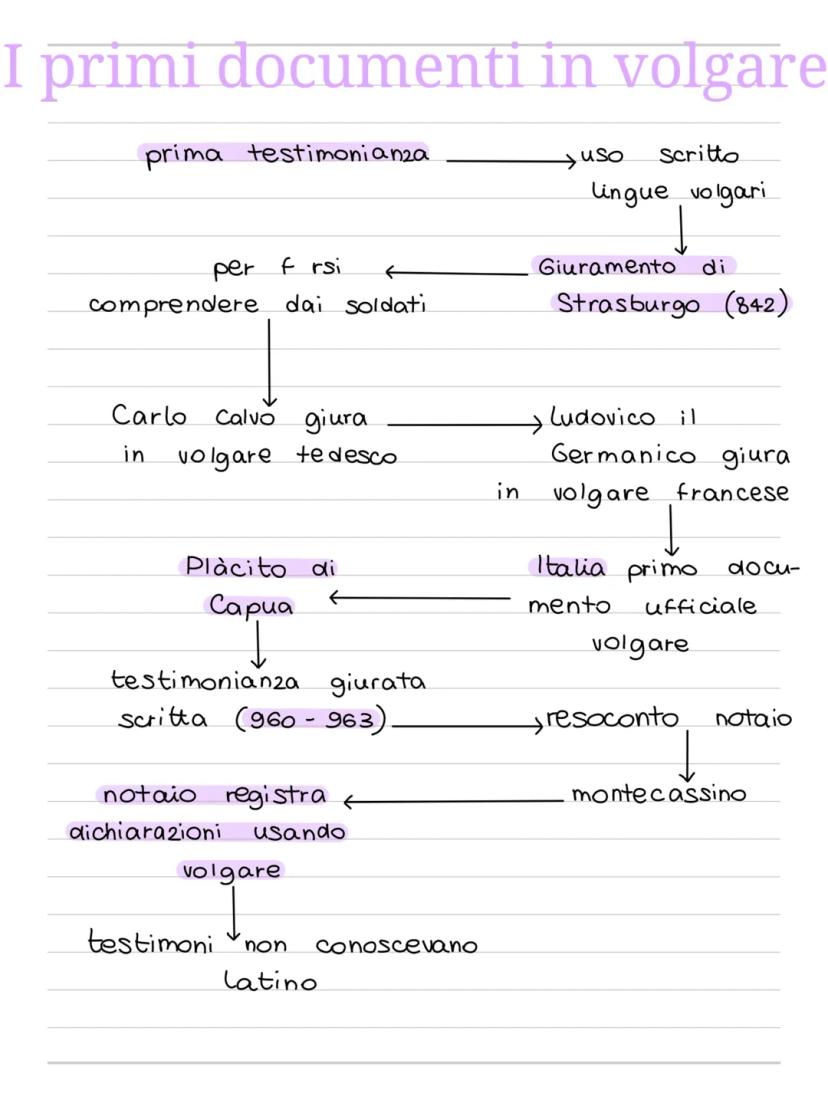 I primi documenti in volgare
prima testimonianza
uso scritto
lingue volgari
Giuramento di
Strasburgo (842)
per f rsi
comprendere dai soldati
Carlo Calvo giura
in volgare tedesco
Ludovico il
Germanico giura
in volgare francese
Italia primo docu-
mento ufficiale
volgare
Plàcito di
Capua
testimonianza giurata
scritta (960 - 963)
resoconto notaio
montecassino
notaio registra
dichiarazioni usando
volgare
testimoni non conoscevano
latino